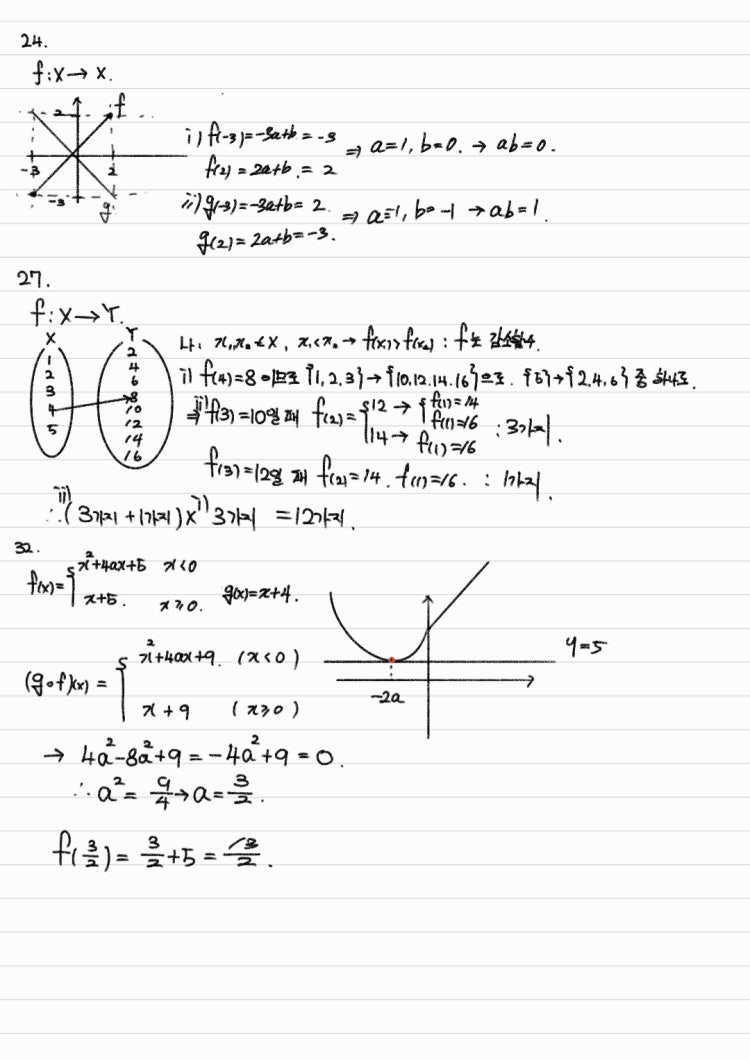 24.
f : X → X.
2 f
-3 2
-3 g
i) f(-3)=-3a+b=-3
f(2)=2a+b.=2
⇒ a=1, b=0. → ab=0.
ii) g(-3)=-3a+b= 2.
g(2)=2a+b=-3.
⇒ a=-1, b=-1 → ab=1.
27.
f : X → Y.
X Y
1 2
2 4
3 6
4 8
5 10
12
14
16
나. x₁,x₂ ∈ X, x₁<x₂ → f(x₁)>f(x₂) : f는 감소함수.
i) f(4)=8 이므로 {1,2,3}→{10.12.14.16}으로. {5}→{2,4,6} 중 하나로.
ii) ⇒ f(3)=10일 때 f(2)= 12 → f(1)=14
f(1)=16
14 → f(1)=16 : 3가지.
f(3)=12일 때 f(2)=14. f(1)=16. : 1가지.
∴ ii) (3가지+1가지)× i) 3가지 =12가지.
32.
f(x)={ x²+4ax+5 x<0
x+5. x≥0. g(x)=x+4.
(g∘f)(x) = { x²+4ax+9. (x<0)
x+9 (x≥0)
y=5
-2a
→ 4a²-8a²+9=-4a²+9=0.
∴ a²= 9/4 → a= 3/2.
f(3/2)= 3/2+5= 13/2.